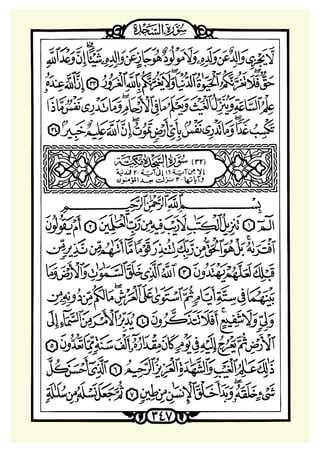 سُورَةُ السَّجْدَةِ
لَّا يَجْزِى وَالِدٌ عَن وَلَدِهِۦ وَلَا مَوْلُودٌ هُوَ جَازٍ عَن وَالِدِهِۦ شَيْـًٔا ۚ إِنَّ وَعْدَ ٱللَّهِ
حَقٌّ ۖ فَلَا تَغُرَّنَّكُمُ ٱلْحَيَوٰةُ ٱلدُّنْيَا وَلَا يَغُرَّنَّكُم بِٱللَّهِ ٱلْغَرُورُ ٣٣ إِنَّ ٱللَّهَ عِندَهُۥ
عِلْمُ ٱلسَّاعَةِ وَيُنَزِّلُ ٱلْغَيْثَ وَيَعْلَمُ مَا فِى ٱلْأَرْحَامِ ۖ وَمَا تَدْرِى نَفْسٌ مَّاذَا
تَكْسِبُ غَدًا ۖ وَمَا تَدْرِى نَفْسٌۢ بِأَىِّ أَرْضٍ تَمُوتُ ۚ إِنَّ ٱللَّهَ عَلِيمٌ خَبِيرٌۢ ٣٤
(٣٢) سُورَةُ السَّجْدَةِ مَكِّيَّة
إلا من آية ١٦ إلى آية ٢٠ فمدنية
وآياتها ٣٠ نزلت بعد المؤمنون
بِسْمِ ٱللَّهِ ٱلرَّحْمَٰنِ ٱلرَّحِيمِ
الٓمٓ ١ تَنزِيلُ ٱلْكِتَٰبِ لَا رَيْبَ فِيهِ مِن رَّبِّ ٱلْعَٰلَمِينَ ٢ أَمْ يَقُولُونَ
ٱفْتَرَىٰهُ ۚ بَلْ هُوَ ٱلْحَقُّ مِن رَّبِّكَ لِتُنذِرَ قَوْمًا مَّآ أَتَىٰهُم مِّن نَّذِيرٍ مِّن
قَبْلِكَ لَعَلَّهُمْ يَهْتَدُونَ ٣ ٱللَّهُ ٱلَّذِى خَلَقَ ٱلسَّمَٰوَٰتِ وَٱلْأَرْضَ وَمَا
بَيْنَهُمَا فِى سِتَّةِ أَيَّامٍ ثُمَّ ٱسْتَوَىٰ عَلَى ٱلْعَرْشِ ۖ مَا لَكُم مِّن دُونِهِۦ مِن
وَلِىٍّ وَلَا شَفِيعٍ ۚ أَفَلَا تَتَذَكَّرُونَ ٤ يُدَبِّرُ ٱلْأَمْرَ مِنَ ٱلسَّمَآءِ إِلَى
ٱلْأَرْضِ ثُمَّ يَعْرُجُ إِلَيْهِ فِى يَوْمٍ كَانَ مِقْدَارُهُۥٓ أَلْفَ سَنَةٍ مِّمَّا تَعُدُّونَ ٥
ذَٰلِكَ عَٰلِمُ ٱلْغَيْبِ وَٱلشَّهَٰدَةِ ٱلْعَزِيزُ ٱلرَّحِيمُ ٦ ٱلَّذِىٓ أَحْسَنَ كُلَّ
شَىْءٍ خَلَقَهُۥ ۖ وَبَدَأَ خَلْقَ ٱلْإِنسَٰنِ مِن طِينٍ ٧ ثُمَّ جَعَلَ نَسْلَهُۥ مِن سُلَٰلَةٍ
٣٤٧